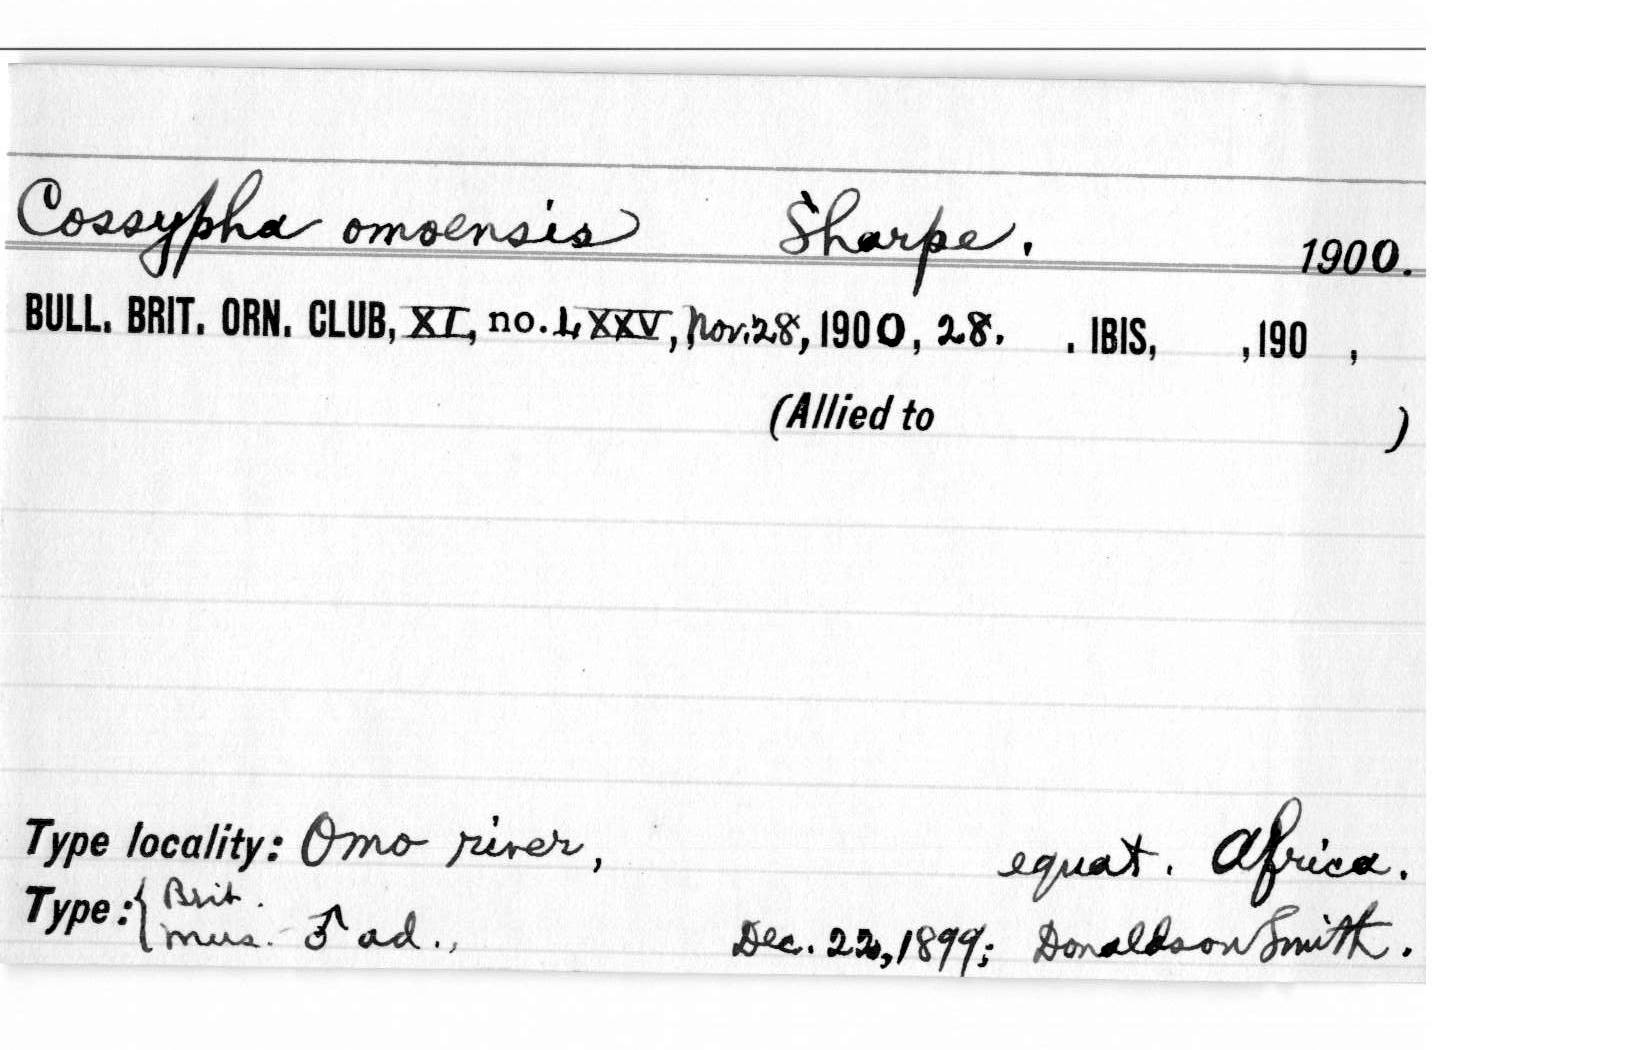 Cossypha omoensis Sharpe. 1900.
BULL. BRIT. ORN. CLUB, XI, no. LXXV, Nov. 28, 1900, 28. . IBIS, , 190 ,
(Allied to )
Type locality: Omo river, equat. Africa.
Type: { Brit. Mus. ♂ ad., Dec. 22, 1899; Donaldson Smith.